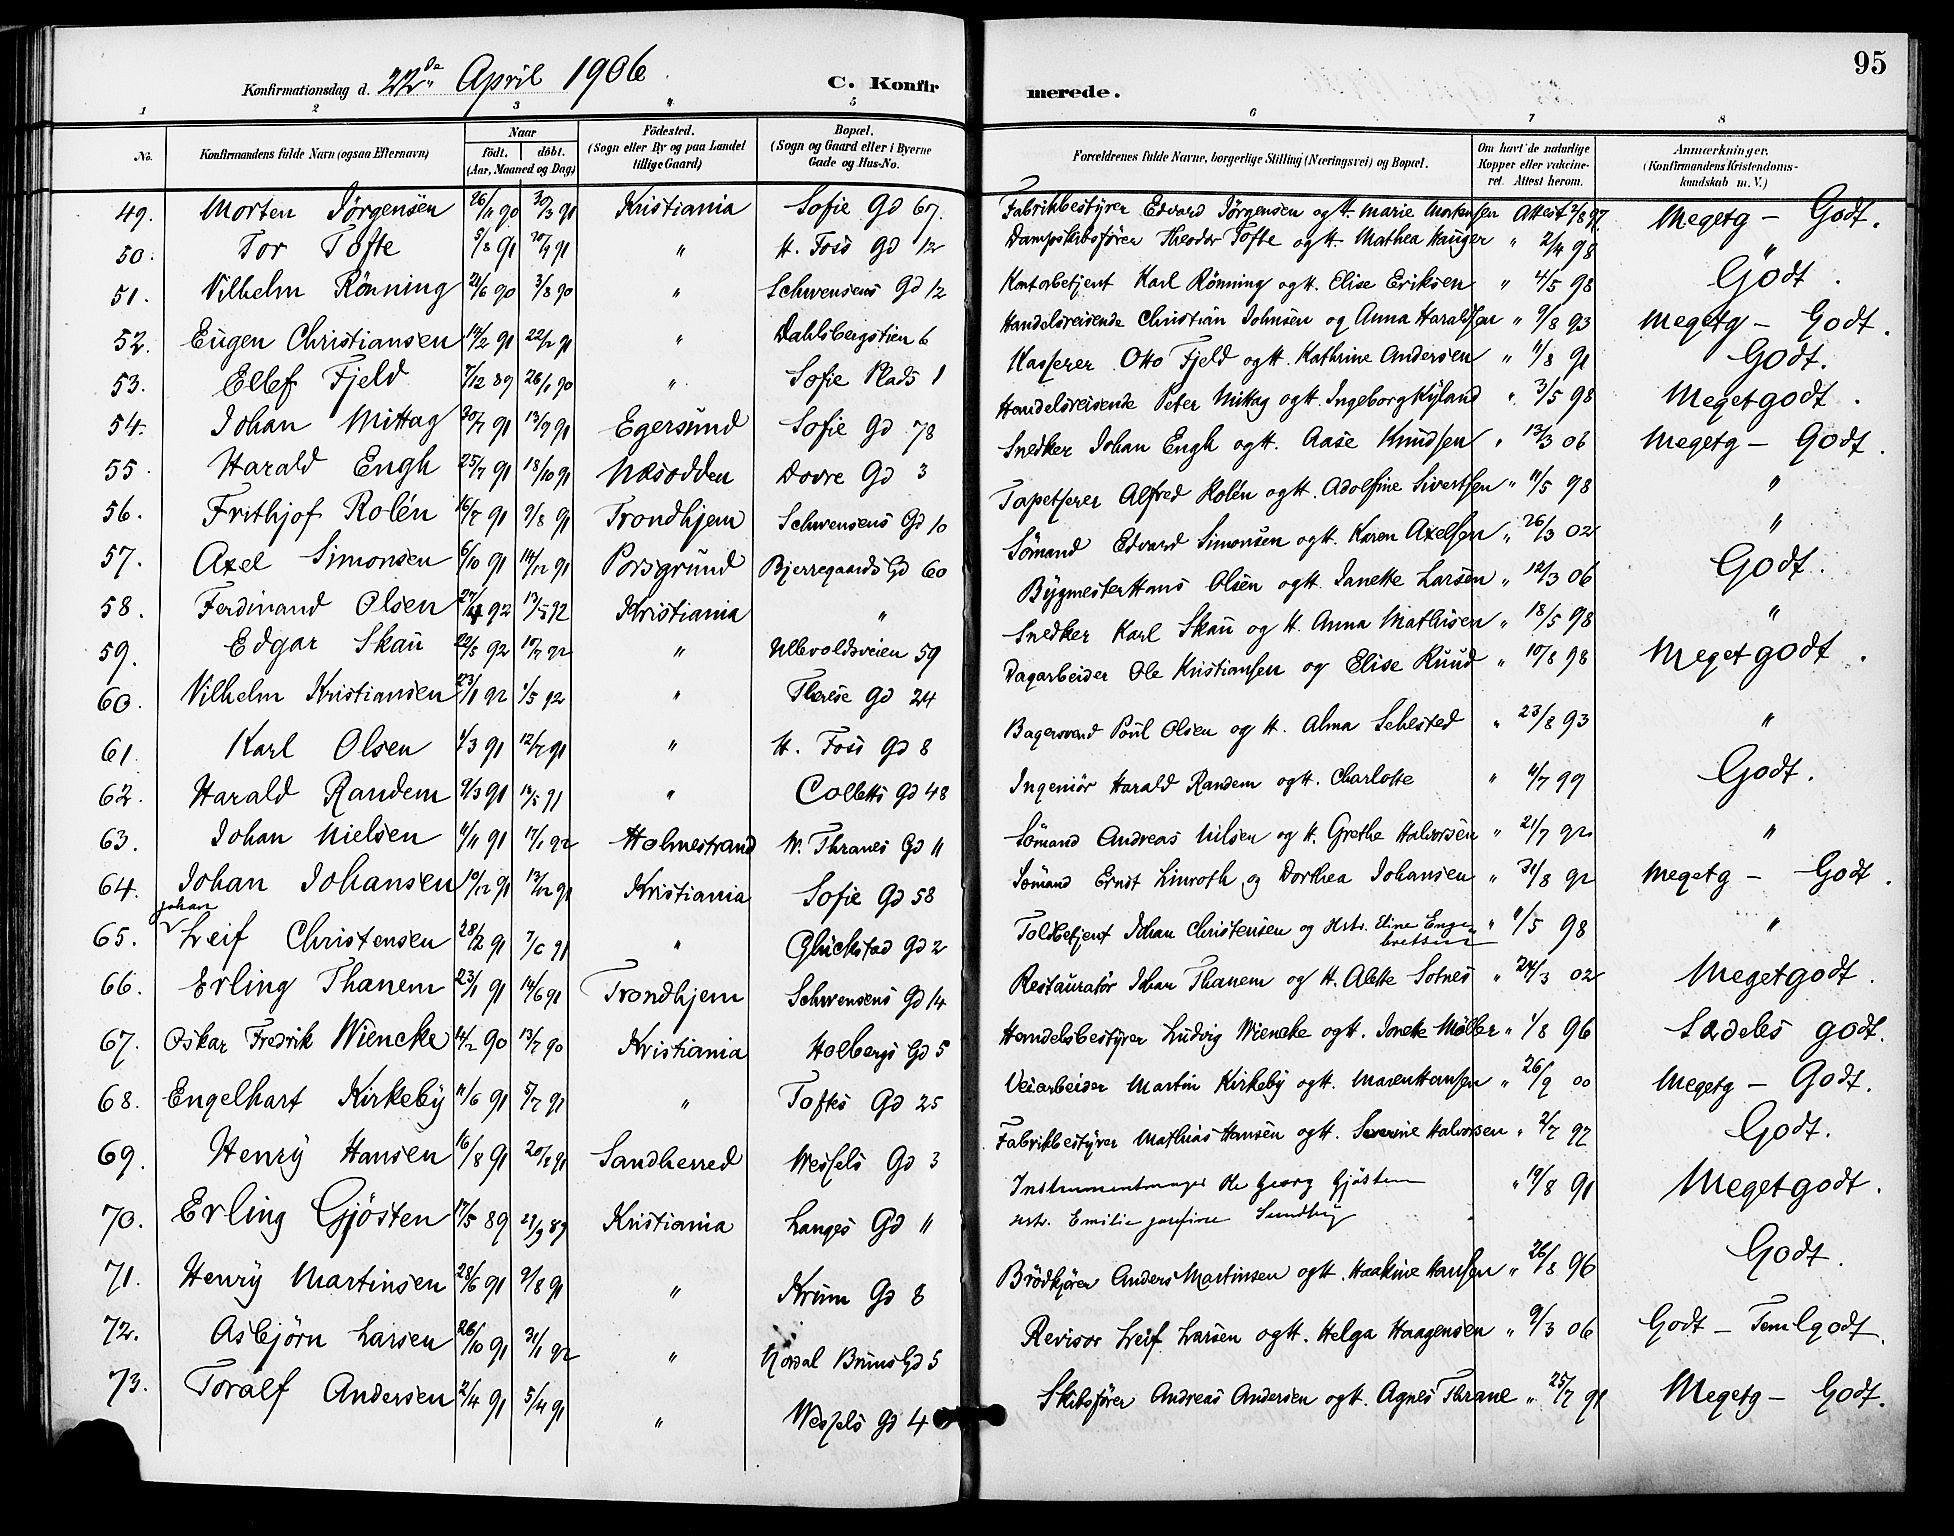 95
Konfirmationsdag d. 22de April 1906 C. Konfirmerede.
1 2 3 4 5 6 7 8
No. Konfirmandens fulde Navn (ogsaa Efternavn) Naar født. døbt. (Aar, Maaned og Dag) Fødested. (Sogn eller By og paa Landet tillige Gaard) Bopæl. (Sogn og Gaard eller i Byerne Gade og Hus-No. Forældrenes fulde Navne, borgerlige Stilling (Næringsvei) og Bopæl. Om havt de naturlige Kopper eller vakcineret. Attest herom. Anmærkninger. (Konfirmandens Kristendomskundskab m. V.)
49. Morten Jørgensen 26/11 90 30/3 91 Kristiania Sofie Gd 67. Fabrikbestyrer Edvard Jørgensen og H. Marie Mortensen Attest 2/8 97. Megetg – Godt.
50. Tor Tofte 5/8 91 20/9 91 " H. Foss Gd 12 Dampskibsfører Theodor Tofte og H. Mathea Hauger " 2/4 98 "
51. Vilhelm Rønning 21/6 90 3/8 90 " Schwensens Gd 12 Kontorbetjent Karl Rønning og H. Elise Eriksen " 4/5 98 Godt.
52. Eugen Christiansen 14/2 91 22/2 91 " Dahlsbergstien 6 Handelsreisende Christian Johnsen og Anna Haraldsen " 9/8 93 Megetg – Godt.
53. Ellef Fjeld 7/12 89 26/1 90 " Sofie Plads 1 Kasserer Otto Fjeld og H. Kathrine Andersen " 11/8 91 Godt.
54. Johan Mittag 20/7 91 13/9 91 Egersund Sofie Gd 78 Handelsreisende Peter Mittag og H. Ingeborg Kyland " 3/5 98 Megetgodt.
55. Harald Engh 25/7 91 18/10 91 Næsodden Dovre Gd 3 Snedker Johan Engh og H. Aase Knudsen " 13/3 06 Megetg – Godt.
56. Frithjof Rolén 16/7 91 9/8 91 Trondhjem Schwensens Gd 10 Tapetserer Alfred Rolén og H. Adolfine Sivertsen " 11/5 98 "
57. Axel Simonsen 6/10 91 14/12 91 Porsgrund Bjerregaards Gd 60 Sømand Edvard Simonsen og H. Karen Axelsen " 26/3 02 "
58. Ferdinand Olsen 27/4 92 13/5 92 Kristiania " Bygmester Hans Olsen og H. Janette Larsen " 12/3 06 Godt.
59. Edgar Skau 22/5 92 10/7 92 " Ullevoldsveien 59 Snedker Karl Skau og H. Anna Mathisen " 18/5 98 "
60. Vilhelm Kristiansen 23/1 92 1/5 92 " Therese Gd 24 Dagarbeider Ole Kristiansen og Elise Ruud " 10/8 98 Megetgodt.
61. Karl Olsen 1/3 91 12/7 91 " H. Foss Gd 8 Bagersvend Poul Olsen og H. Alma Sehested " 23/8 93 "
62. Harald Randem 9/3 91 18/5 91 " Colletts Gd 48 Ingeniør Harald Randem og H. Charlotte " 11/7 99 Godt.
63. Johan Nielsen 11/11 91 17/1 92 Holmestrand W. Thranes Gd 11 Sømand Andreas Nilsen og H. Grethe Halvorsen " 21/7 92 "
64. Johan Johansen 10/12 91 13/12 91 Kristiania Sofie Gd 58 Sømand Ernst Linroth og Dorthea Johansen " 31/8 92 Megetg – Godt.
Johan
65. Leif Christensen 28/2 91 7/6 91 " Glückstad Gd 2 Toldbetjent Johan Christensen og Hstr. Eline Engebretsen " 11/5 98 "
66. Erling Thanem 23/1 91 14/6 91 Trondhjem Schwensens Gd 14 Restauratør Johan Thanem og H. Alette Sotnes " 24/3 02 Megetgodt.
67. Oskar Fredrik Wiencke 14/2 90 13/7 90 Kristiania Holbergs Gd 5 Handelsbestyrer Ludvig Wiencke og H. Jonette Møller " 1/8 96 Særdeles godt.
68. Engelhart Kirkeby 11/6 91 5/7 91 " Toftes Gd 25 Veiarbeider Martin Kirkeby og H. Maren Hansen " 26/9 00 Megetg – Godt.
69. Henry Hansen 16/8 91 20/9 91 Sandherred Wessels Gd 3 Fabrikbestyrer Mathias Hansen og H. Severine Halvorsen " 2/7 97 Godt.
70. Erling Gjösten 17/5 89 29/9 89 Kristiania Langes Gd 11 Instrumentmager Ole Georg Gjösten " 19/8 91 Megetgodt.
Hstr. Emilie Josefine Sundbye
71. Henry Martinsen 28/6 91 9/8 91 " Krum Gd 8 Brødkjører Anders Martinsen og H. Haakine Hansen " 26/8 96 Godt.
72. Asbjørn Larsen 26/10 91 31/1 92 " Nordal Bruns Gd 5 Revisor Leif Larsen og H. Helga Haagensen " 9/3 06 Godt – Temlgodt.
73. Toralf Andersen 2/4 91 5/4 91 " Wessels Gd 4 Skibsfører Andreas Andersen og H. Agnes Thrane " 25/7 91 Megetg – Godt.